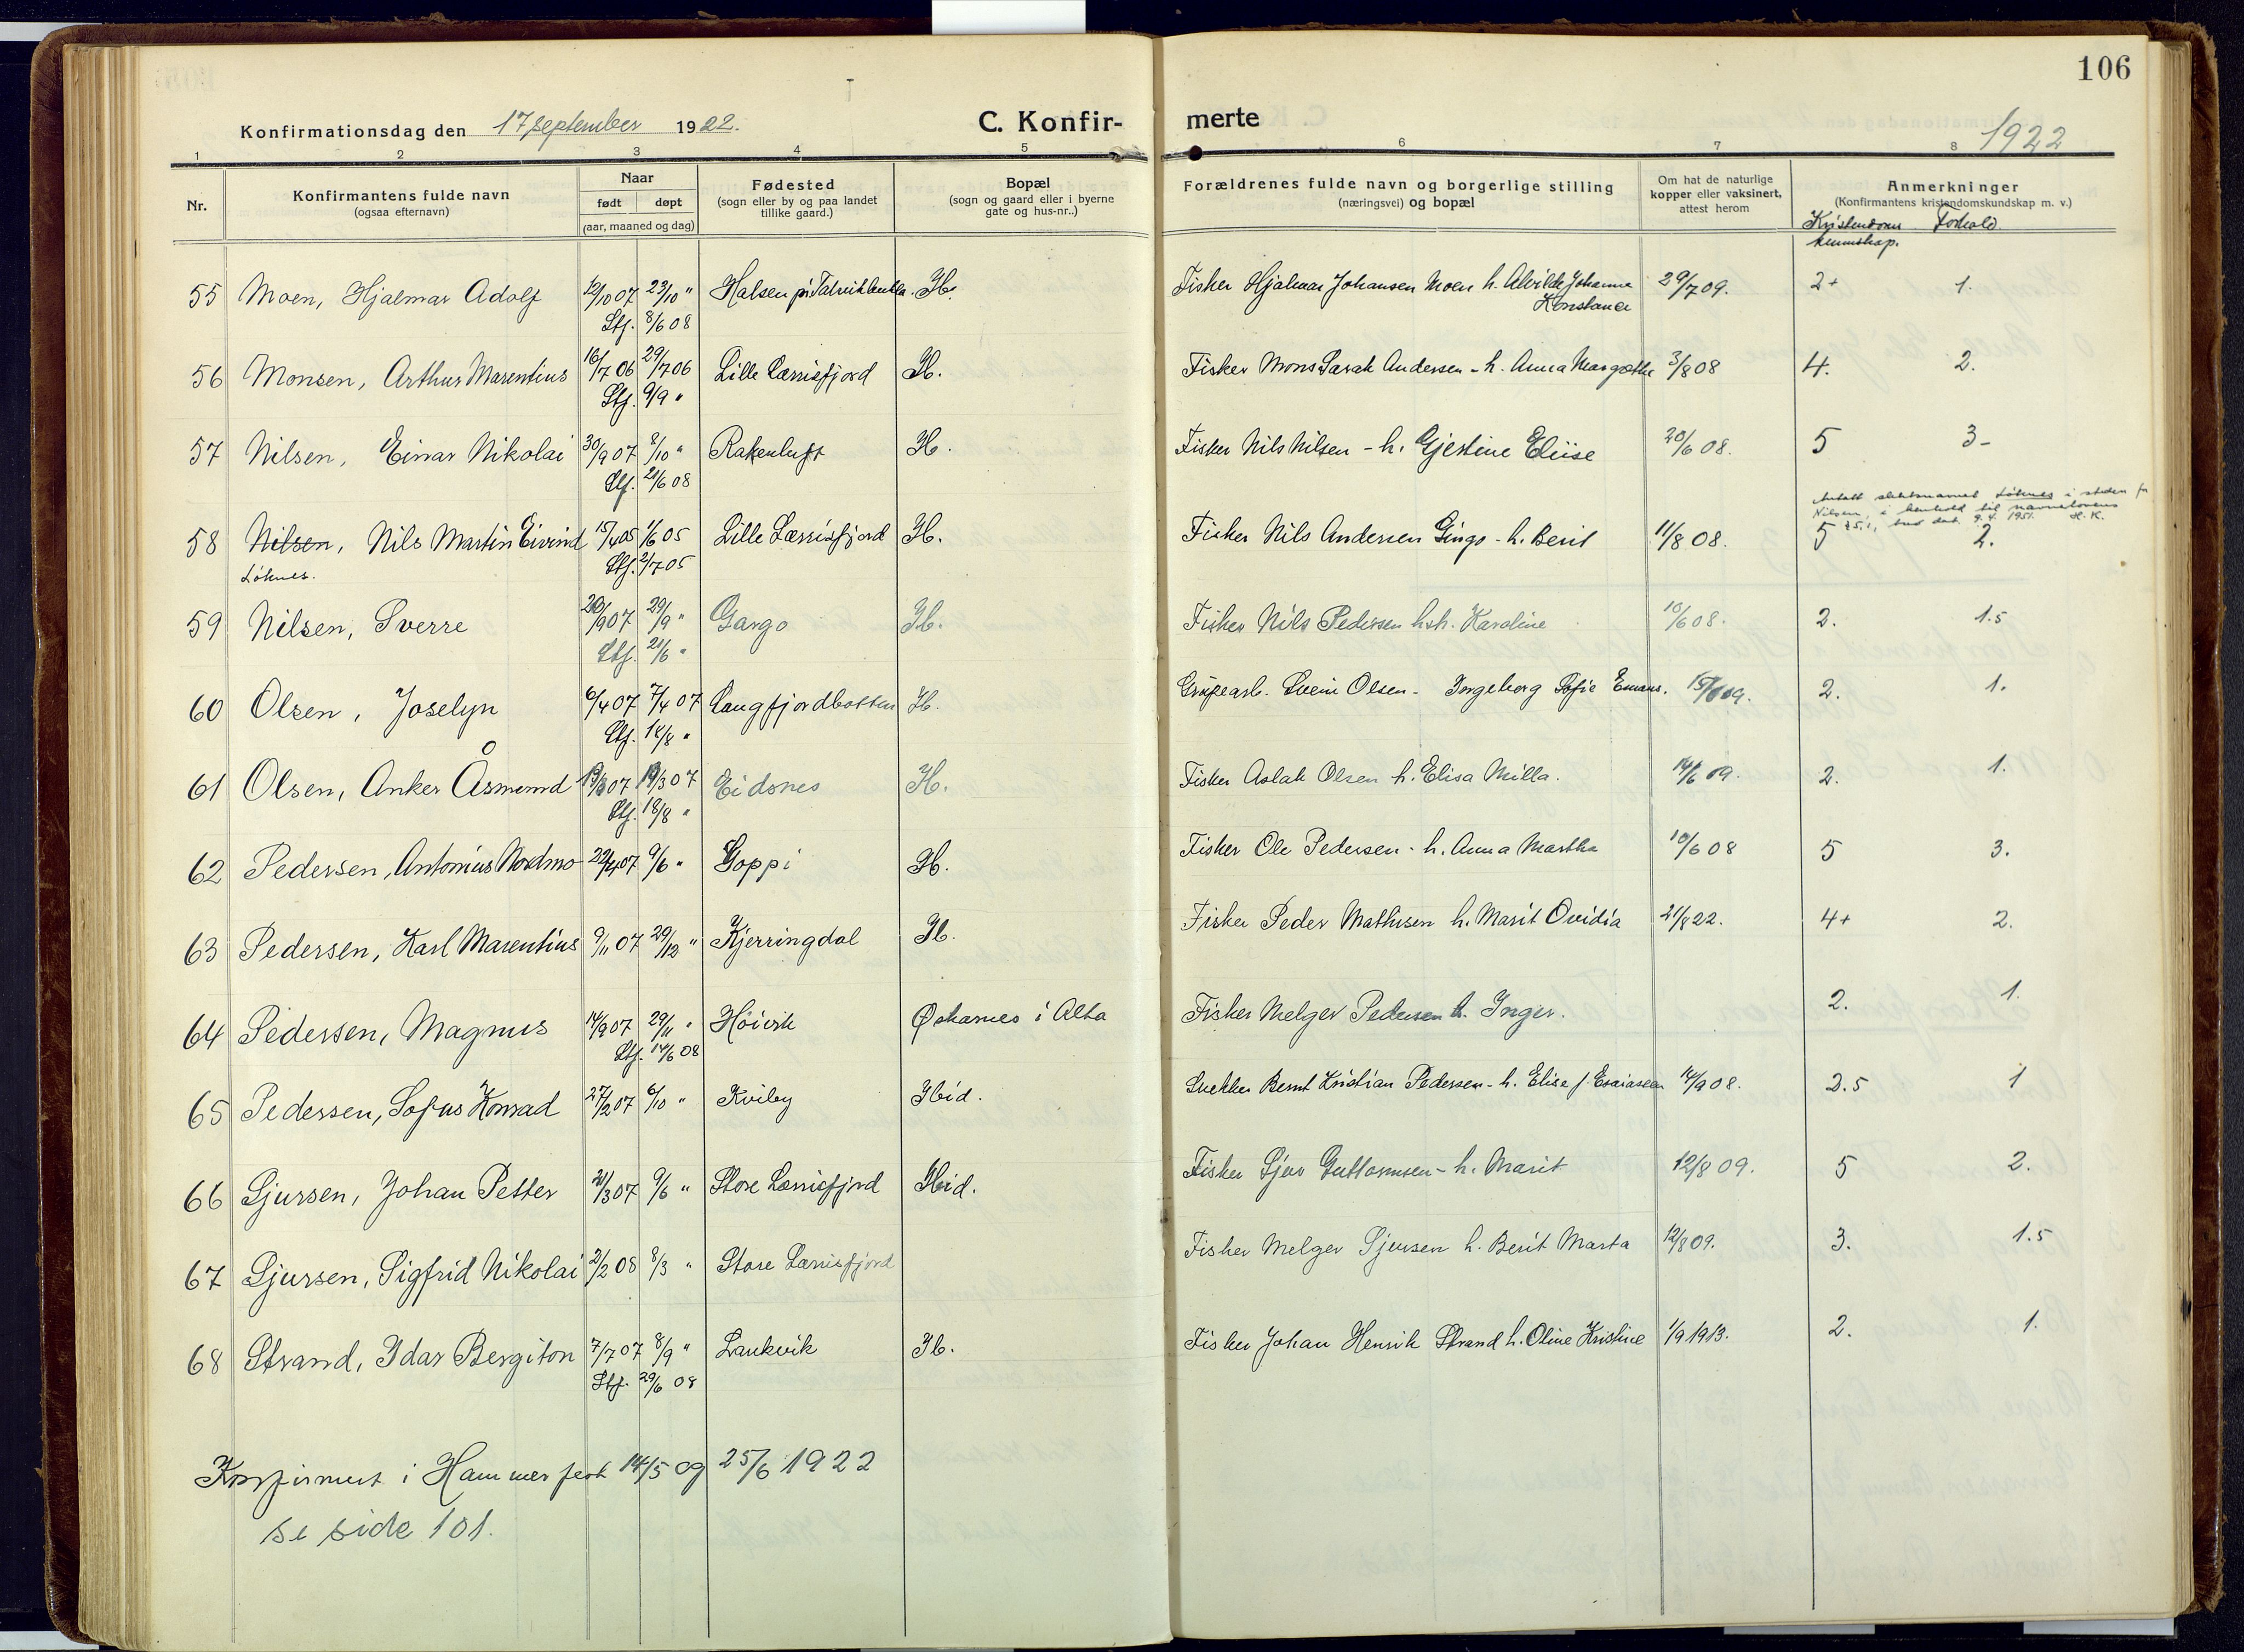 106
Konfirmationsdag den 17 september 1922.
C. Konfir-
merte
1922
1 2 3 4 5 6 7 8
Nr.
Konfirmantens fulde navn
(ogsaa efternavn)
Naar
født døpt
(aar, maaned og dag)
Fødested
(sogn eller by og paa landet
tillike gaard.)
Bopæl
(sogn og gaard eller i byerne
gate og hus-nr..)
Forældrenes fulde navn og borgerlige stilling
(næringsvei) og bopæl
Om hat de naturlige
kopper eller vaksinert,
attest herom
Anmerkninger
(Konfirmantens kristendomskundskap m. v.)
Kristendoms Forhold
kunnskap.
55 Moen, Hjalmar Adolf 12/10 07 23/10 " Halsen pr. Talvik Ib. Fisker Hjalmar Johansen Moen h. Alvilde Johanne 29/7 09. 2+ 1.
Stf. 8/6 08 Konstance
56 Monsen, Arthur Marentius 16/7 06 29/7 06 Lille Lærrisfjord Ib. Fisker Mons Sarak Andersen - h. Anna Margrethe 3/8 08 4. 2.
Stf. 9/9 "
57 Nilsen, Einar Nikolai 30/9 07 8/10 " Rakenluft Ib. Fisker Nils Nilsen - h. Gjertine Eliise 20/6 08. 5 3-
Stf. 21/6 08
Antatt slektsnavnet Løknes i steden for
Nilsen, i henhold til navnelovens
§ 5.1, bev. dat. 9.4. 1951. H.K.
58 Nilsen, Nils Martin Eivind 15/4 05 1/6 05 Lille Lærrisfjord Ib. Fisker Nils Andersen Gingo - h. Berit 11/8 08. 5 2.
Løknes. Stf. 2/7 05
59 Nilsen, Sverre 20/9 07 29/9 " Gargo Ib. Fisker Nils Pedersen hsh. Karoline 10/6 08. 2. 1.5
Stf. 21/6 "
60 Olsen, Joselyn 6/4 07 7/4 07 Langfjordbotten Ib. Grubearb. Svein Olsen - Ingeborg Sofie Emans. 15/6 09. 2. 1.
Stf. 18/8 "
61 Olsen, Anker Åsmund 19/3 07 19/3 07 Eidsnes Ib. Fisker Aslak Olsen h. Elisa Milla. 14/6 09. 2. 1.
Stf. 18/8 "
62 Pedersen, Antonius Nordmo 22/4 07 9/6 " Goppi Ib. Fisker Ole Pedersen - h. Anna Martha 10/6 08 5 3.
63 Pedersen, Karl Marentius 9/11 07 29/12 " Kjerringdal Ib. Fisker Peder Mathisen h. Marit Ovidia 21/8 22. 4+ 2.
64 Pedersen, Magnus 14/9 07 29/11 " Höivik Øskarnes i Alta Fisker Melger Pedersen h. Inger. 2. 1.
Stf. 14/6 08
65 Pedersen, Sofus Konrad 27/2 07 6/10 " Kviby Ibid. Snekker Bernt Kristian Pedersen - h. Elise f. Esaiassen 14/9 08. 2.5 1
66 Sjursen, Johan Petter 21/3 07 9/6 " Store Lærrisfjord Ibid. Fisker Sjur Guttormsen - h. Marit 12/8 09. 5 2.
67 Sjursen, Sigfrid Nikolai 2/2 08 8/3 " Store Lærrisfjord Fisker Melger Sjursen h. Berit Marta 12/8 09. 3. 1.5
68 Strand, Idar Bergiton 7/7 07 8/9 " Lankvik Ib. Fisker Johan Henrik Strand h. Oline Kristine 1/9 1913. 2. 1.
Stf. 29/6 08
Konfirmert i Hammerfest 14/5 og 25/6 1922
se side 101.